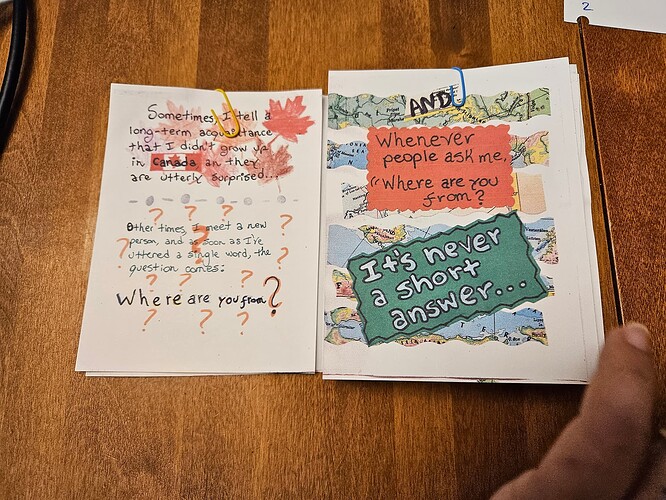 Sometimes I tell a
long-term acquaintance
that I didn't grow up
in Canada an they
are utterly surprised...
Other times I meet a new
person, and as soon as I've
uttered a single word, the
question comes:
Where are you from?
AND
Whenever
people ask me,
"Where are you
from?
It's never
a short
answer...
2